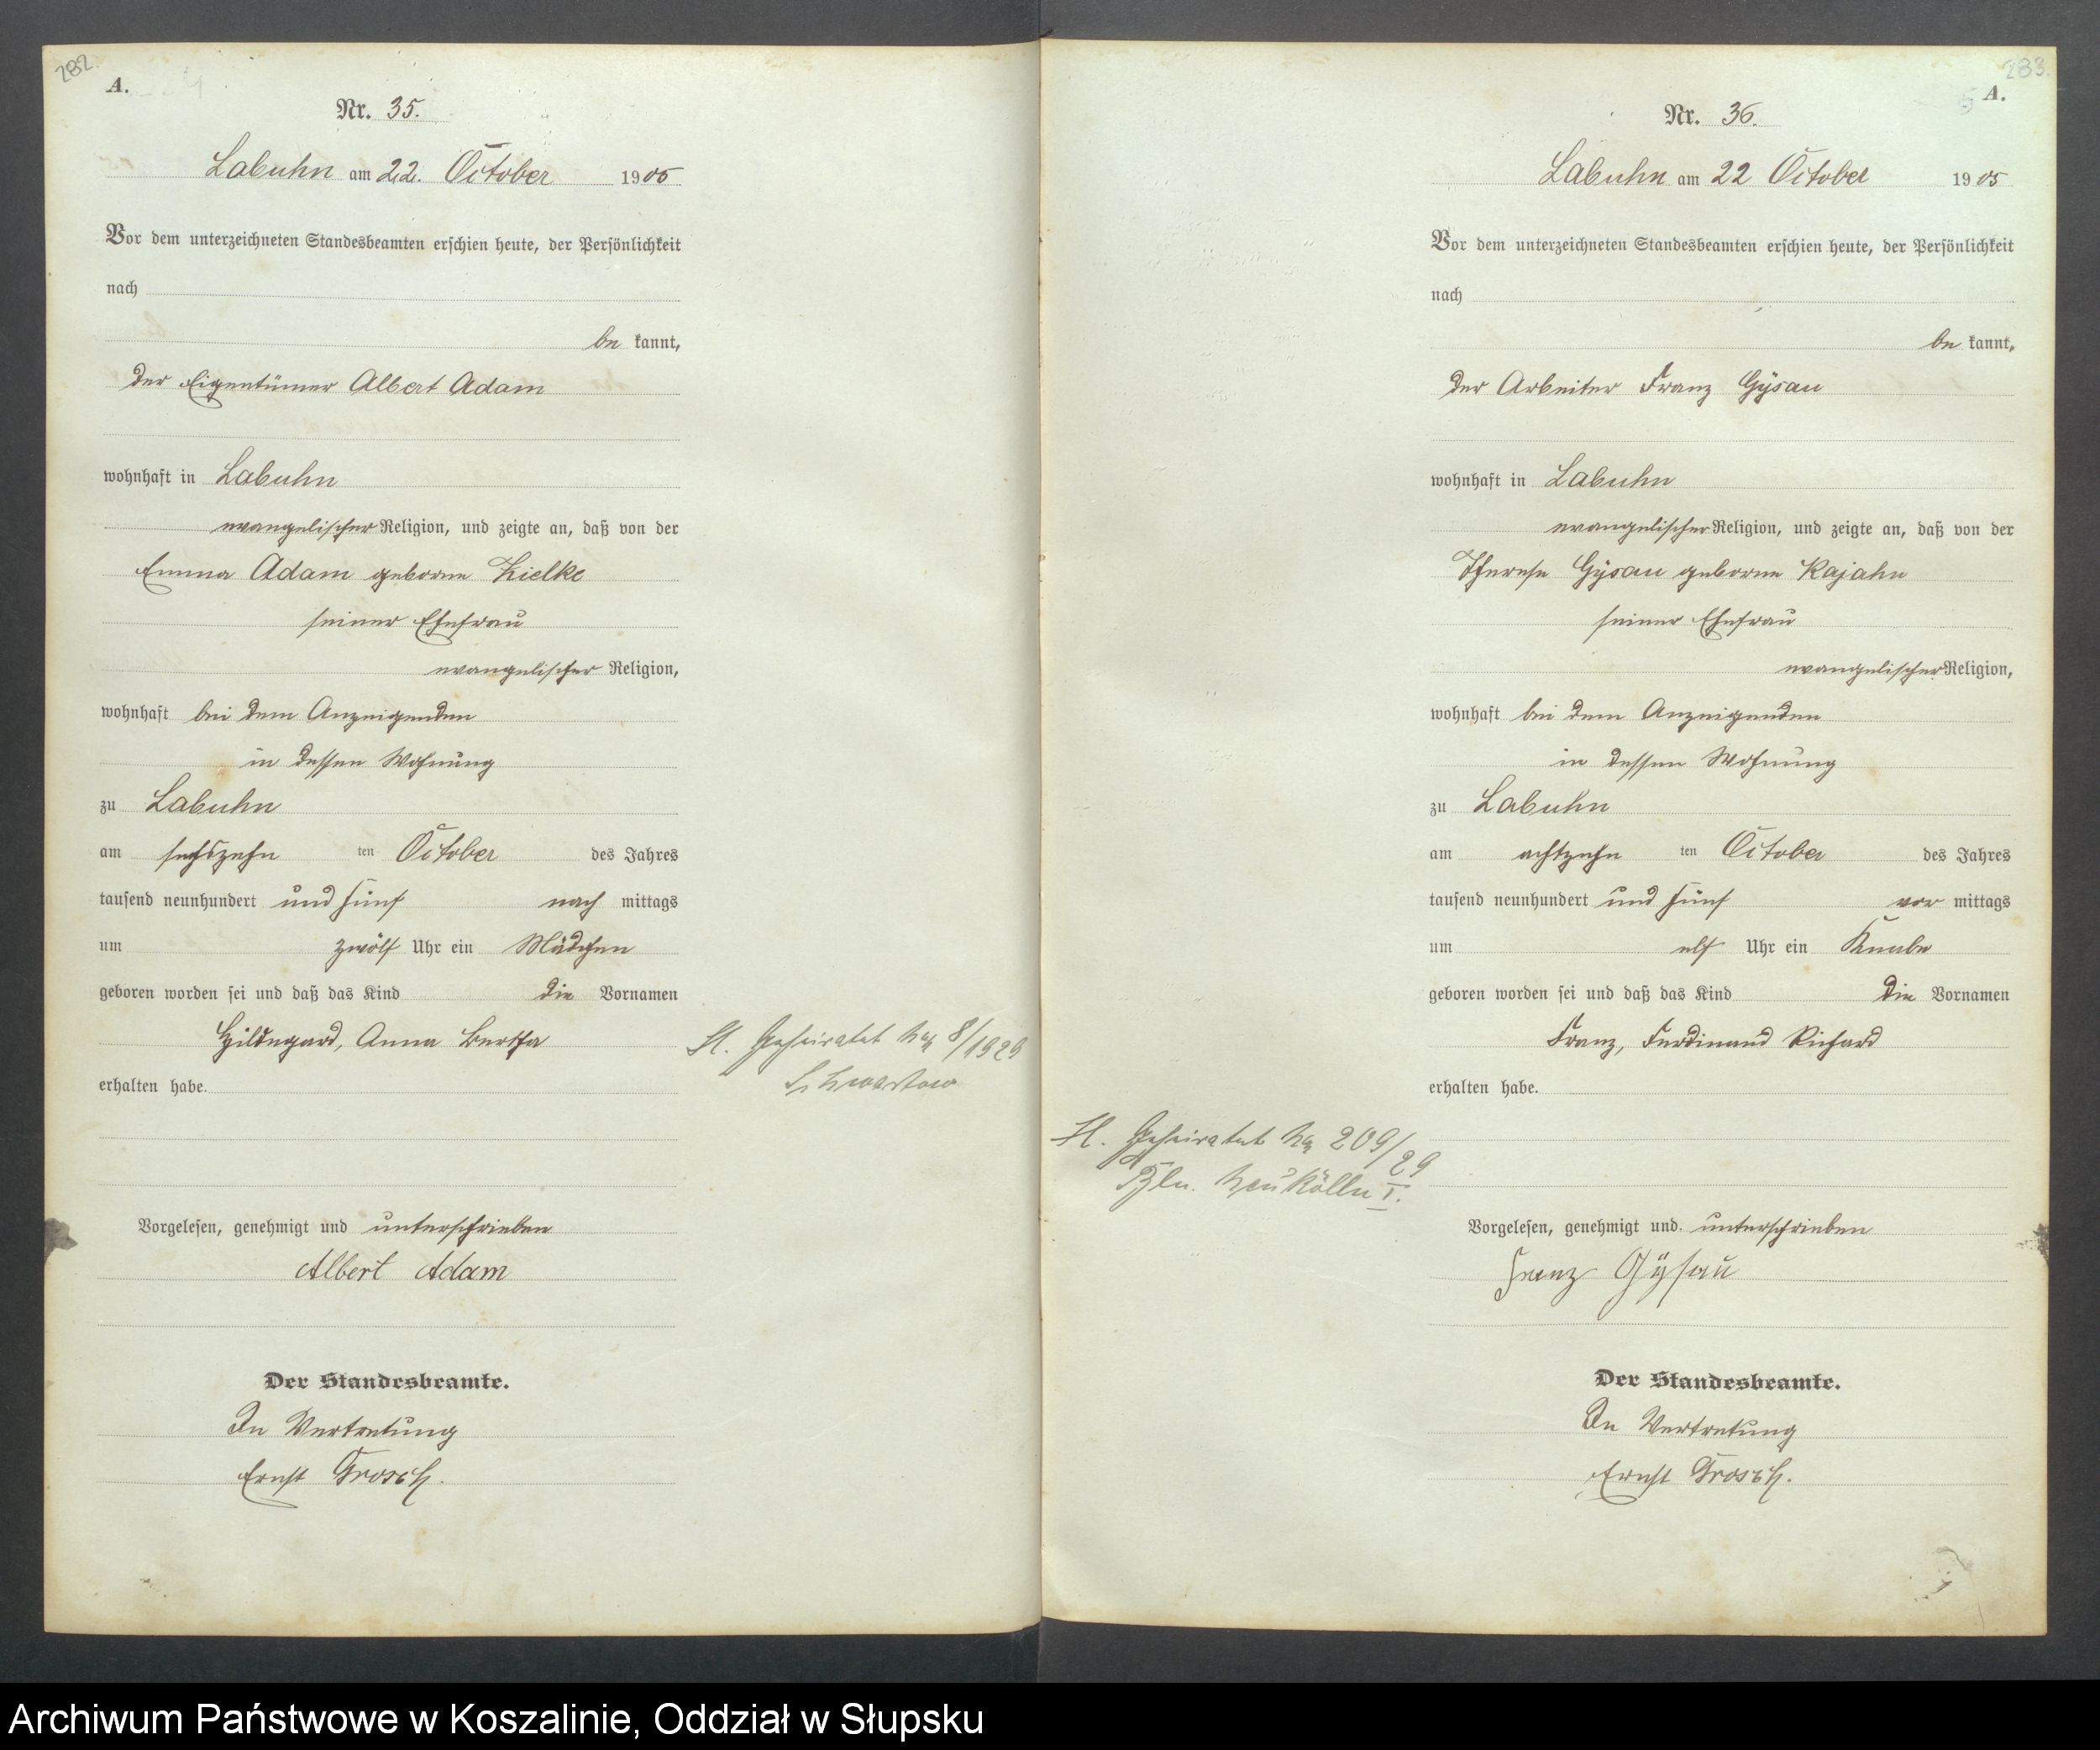 282.
A.
Nr. 35.
Labuhn am 22. October 1905
Vor dem unterzeichneten Standesbeamten erschien heute, der Persönlichkeit
nach
be kannt,
der Eigentümer Albert Adam
wohnhaft in Labuhn
evangelischer Religion, und zeigte an, daß von der
Emma Adam geborne Zielke
seiner Ehefrau
evangelischer Religion,
wohnhaft bei dem Anzeigenden
in dessen Wohnung
zu Labuhn
am sechszehn ten October des Jahres
tausend neunhundert und fünf nach mittags
um zwölf Uhr ein Mädchen
geboren worden sei und daß das Kind die Vornamen
Hildegard, Anna Bertha
erhalten habe.
St. Geheiratet No 8/1929
Schwartow
Vorgelesen, genehmigt und unterschrieben
Albert Adam
Der Standesbeamte.
In Vertretung
Ernst Grosch.
283.
A.
Nr. 36.
Labuhn am 22 October 1905
Vor dem unterzeichneten Standesbeamten erschien heute, der Persönlichkeit
nach
be kannt,
der Arbeiter Franz Gÿsau
wohnhaft in Labuhn
evangelischer Religion, und zeigte an, daß von der
Therese Gÿsau geborne Rajahn
seiner Ehefrau
evangelischer Religion,
wohnhaft bei dem Anzeigenden
in dessen Wohnung
zu Labuhn
am achtzehn ten October des Jahres
tausend neunhundert und fünf vor mittags
um elf Uhr ein Knabe
geboren worden sei und daß das Kind die Vornamen
Franz, Ferdinand Richard
erhalten habe.
St. Geheiratet No 209/29
Bln. Neukölln I.
Vorgelesen, genehmigt und unterschrieben
Franz Gÿsau
Der Standesbeamte.
In Vertretung
Ernst Grosch.
Archiwum Państwowe w Koszalinie, Oddział w Słupsku